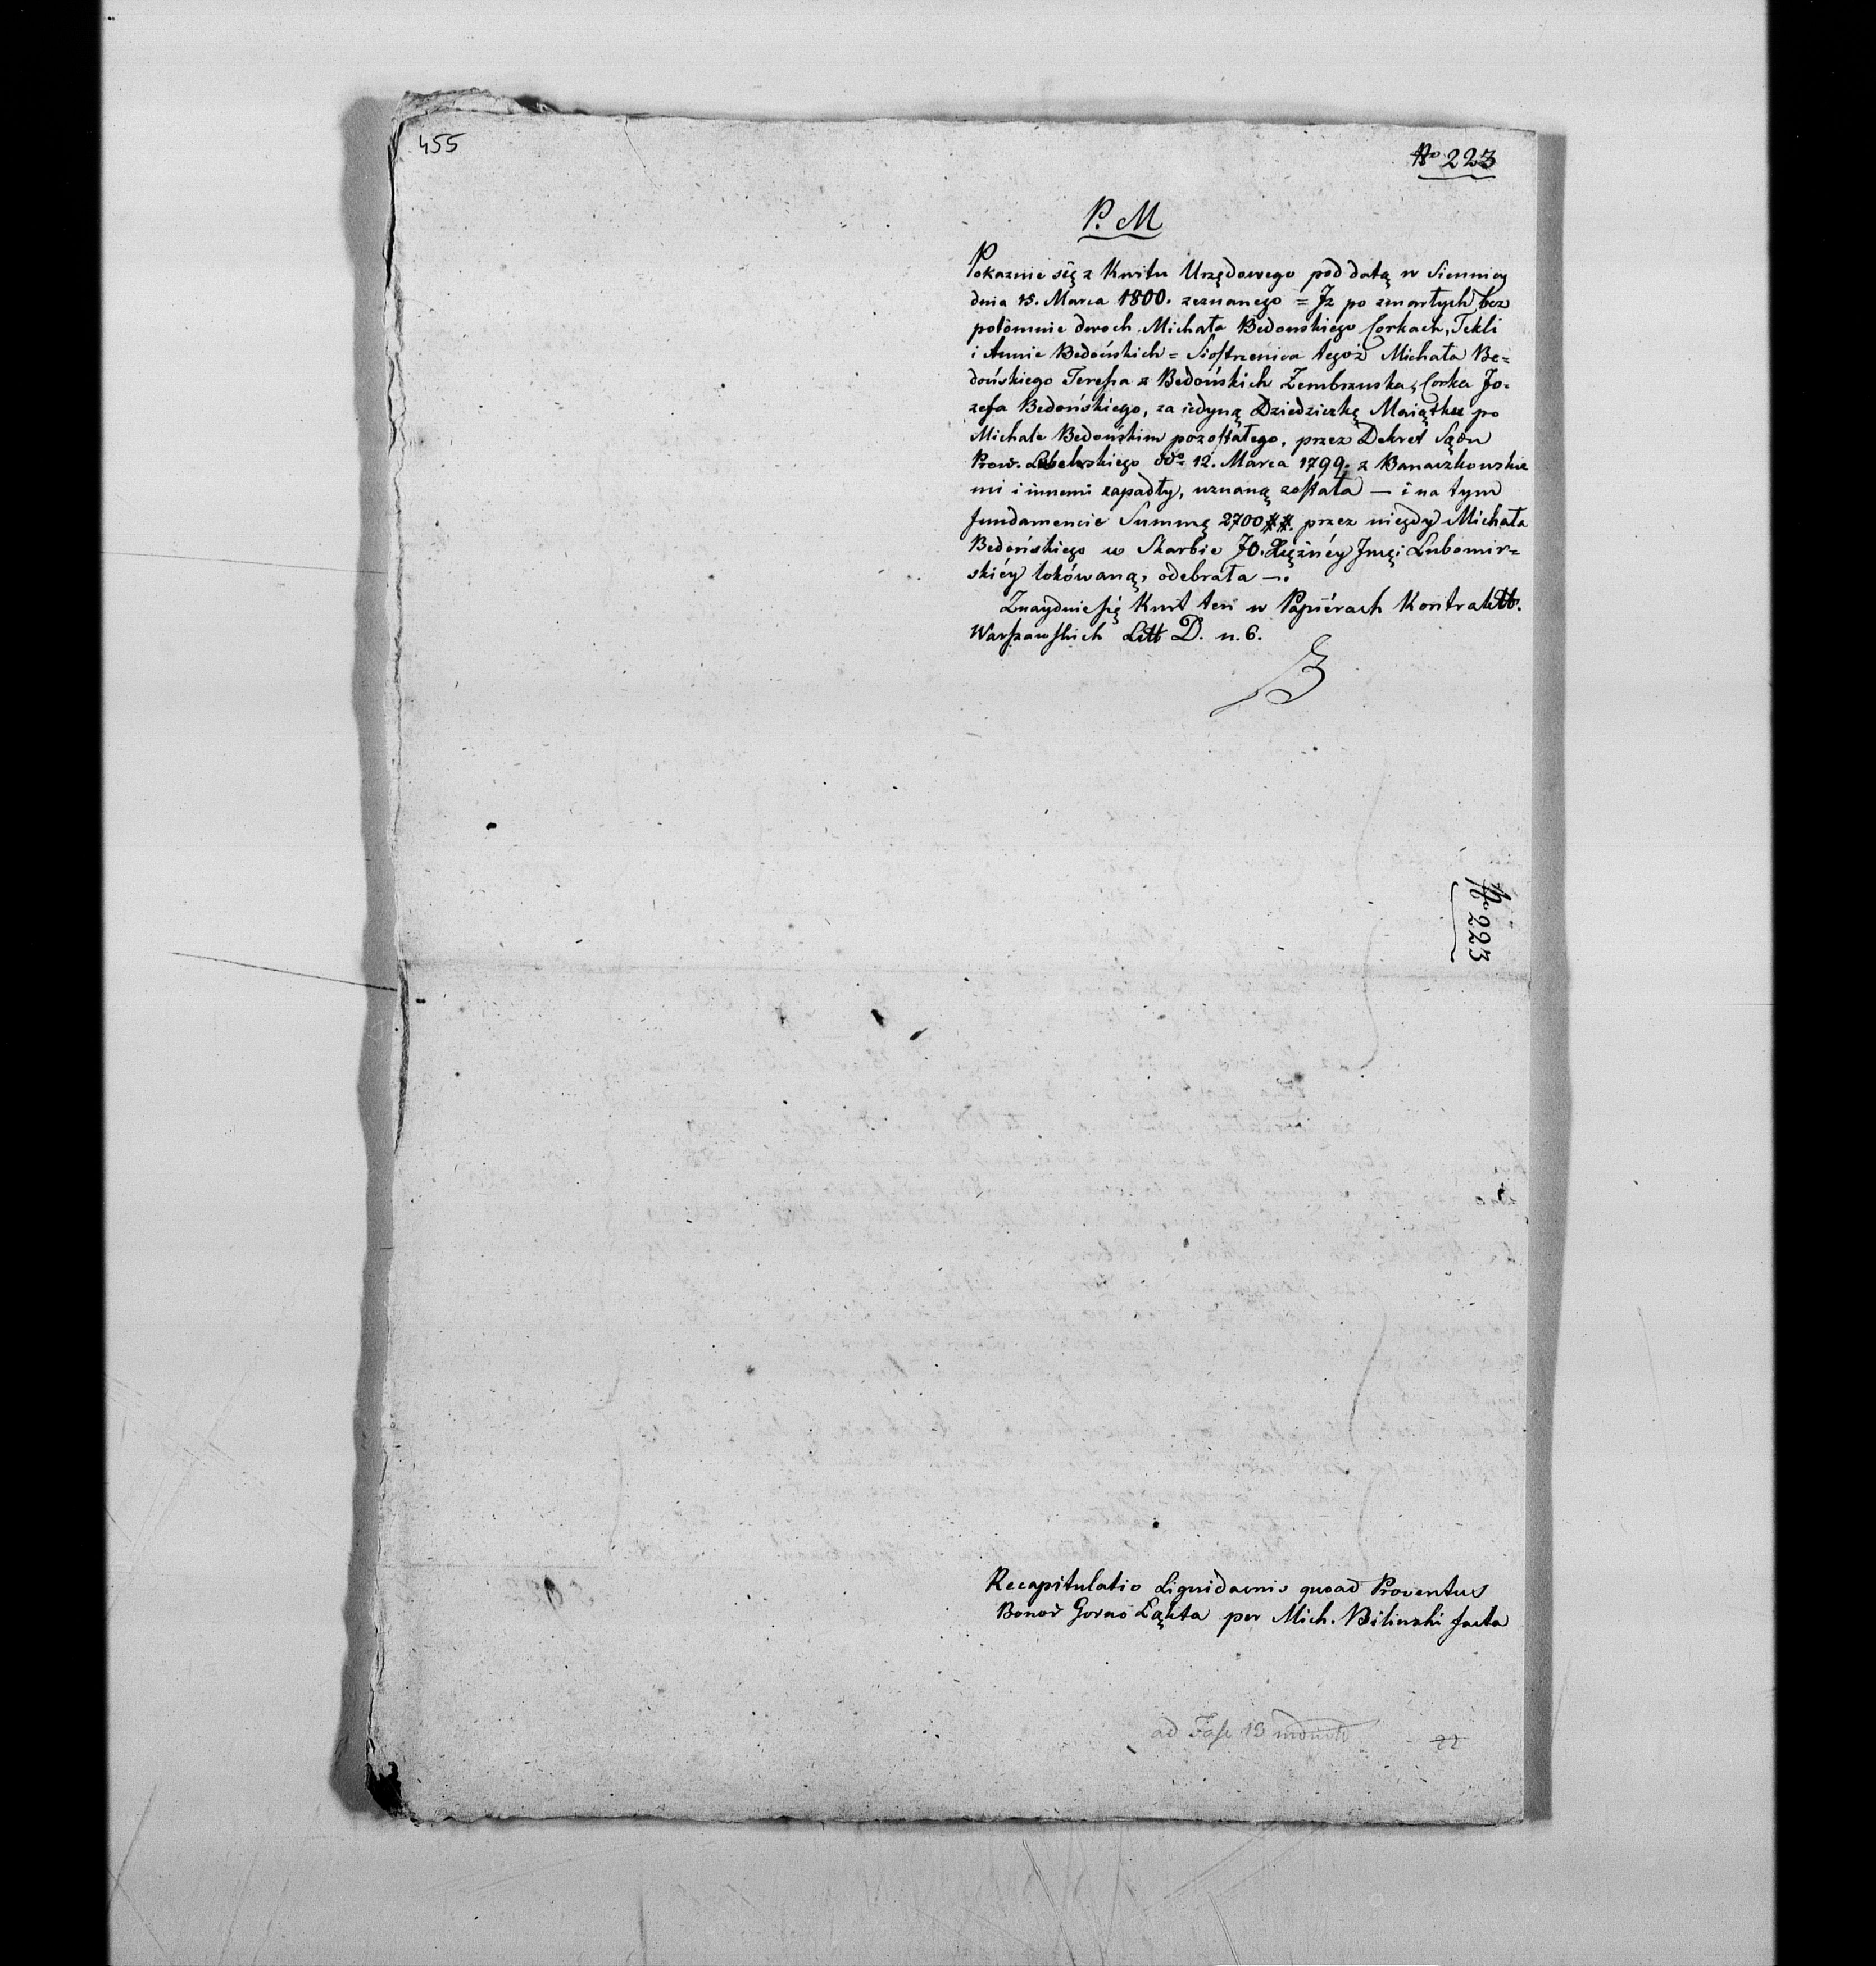 455
No 223
P. M
Pokazuie się z Kwitu Urzędowego pod datą w Siennicy
dnia 15. Marca 1800. zeznanego = Iz po zmarłych bez
potomnie dwoch Michała Bedonskiego Corkach, Tekli
i Annie Bedońskich = Siostrzenica tegoż Michała Be=
dońskiego Teressa z Bedońskich Zembrzuska, Corka Jo=
zefa Bedońskiego, za iedyną Dziedziczkę Maiątku po
Michale Bedońskim pozostałego, przez Dekret Sądu
Prow. Lubelskiego ddo 12. Marca 1799. z Banaczkowskie
mi i innemi zapadły, uznaną została — i na tym
fundamencie Summę 2700 ##. przez niegdy Michała
Bedońskiego w Skarbie JO. Xiężnéy Jmęi Lubomir=
skiéy lokowaną, odebrała —.
Znayduie się Kwit ten w Papiérach Kontraktt.
Warszawskich Litt D. n. 6.
No 223
Recapitulatio Liquidaonis quoad Proventus
Bonor Gorno Łąkta per Mich. Bilinski facta
ad Fasc 13
22